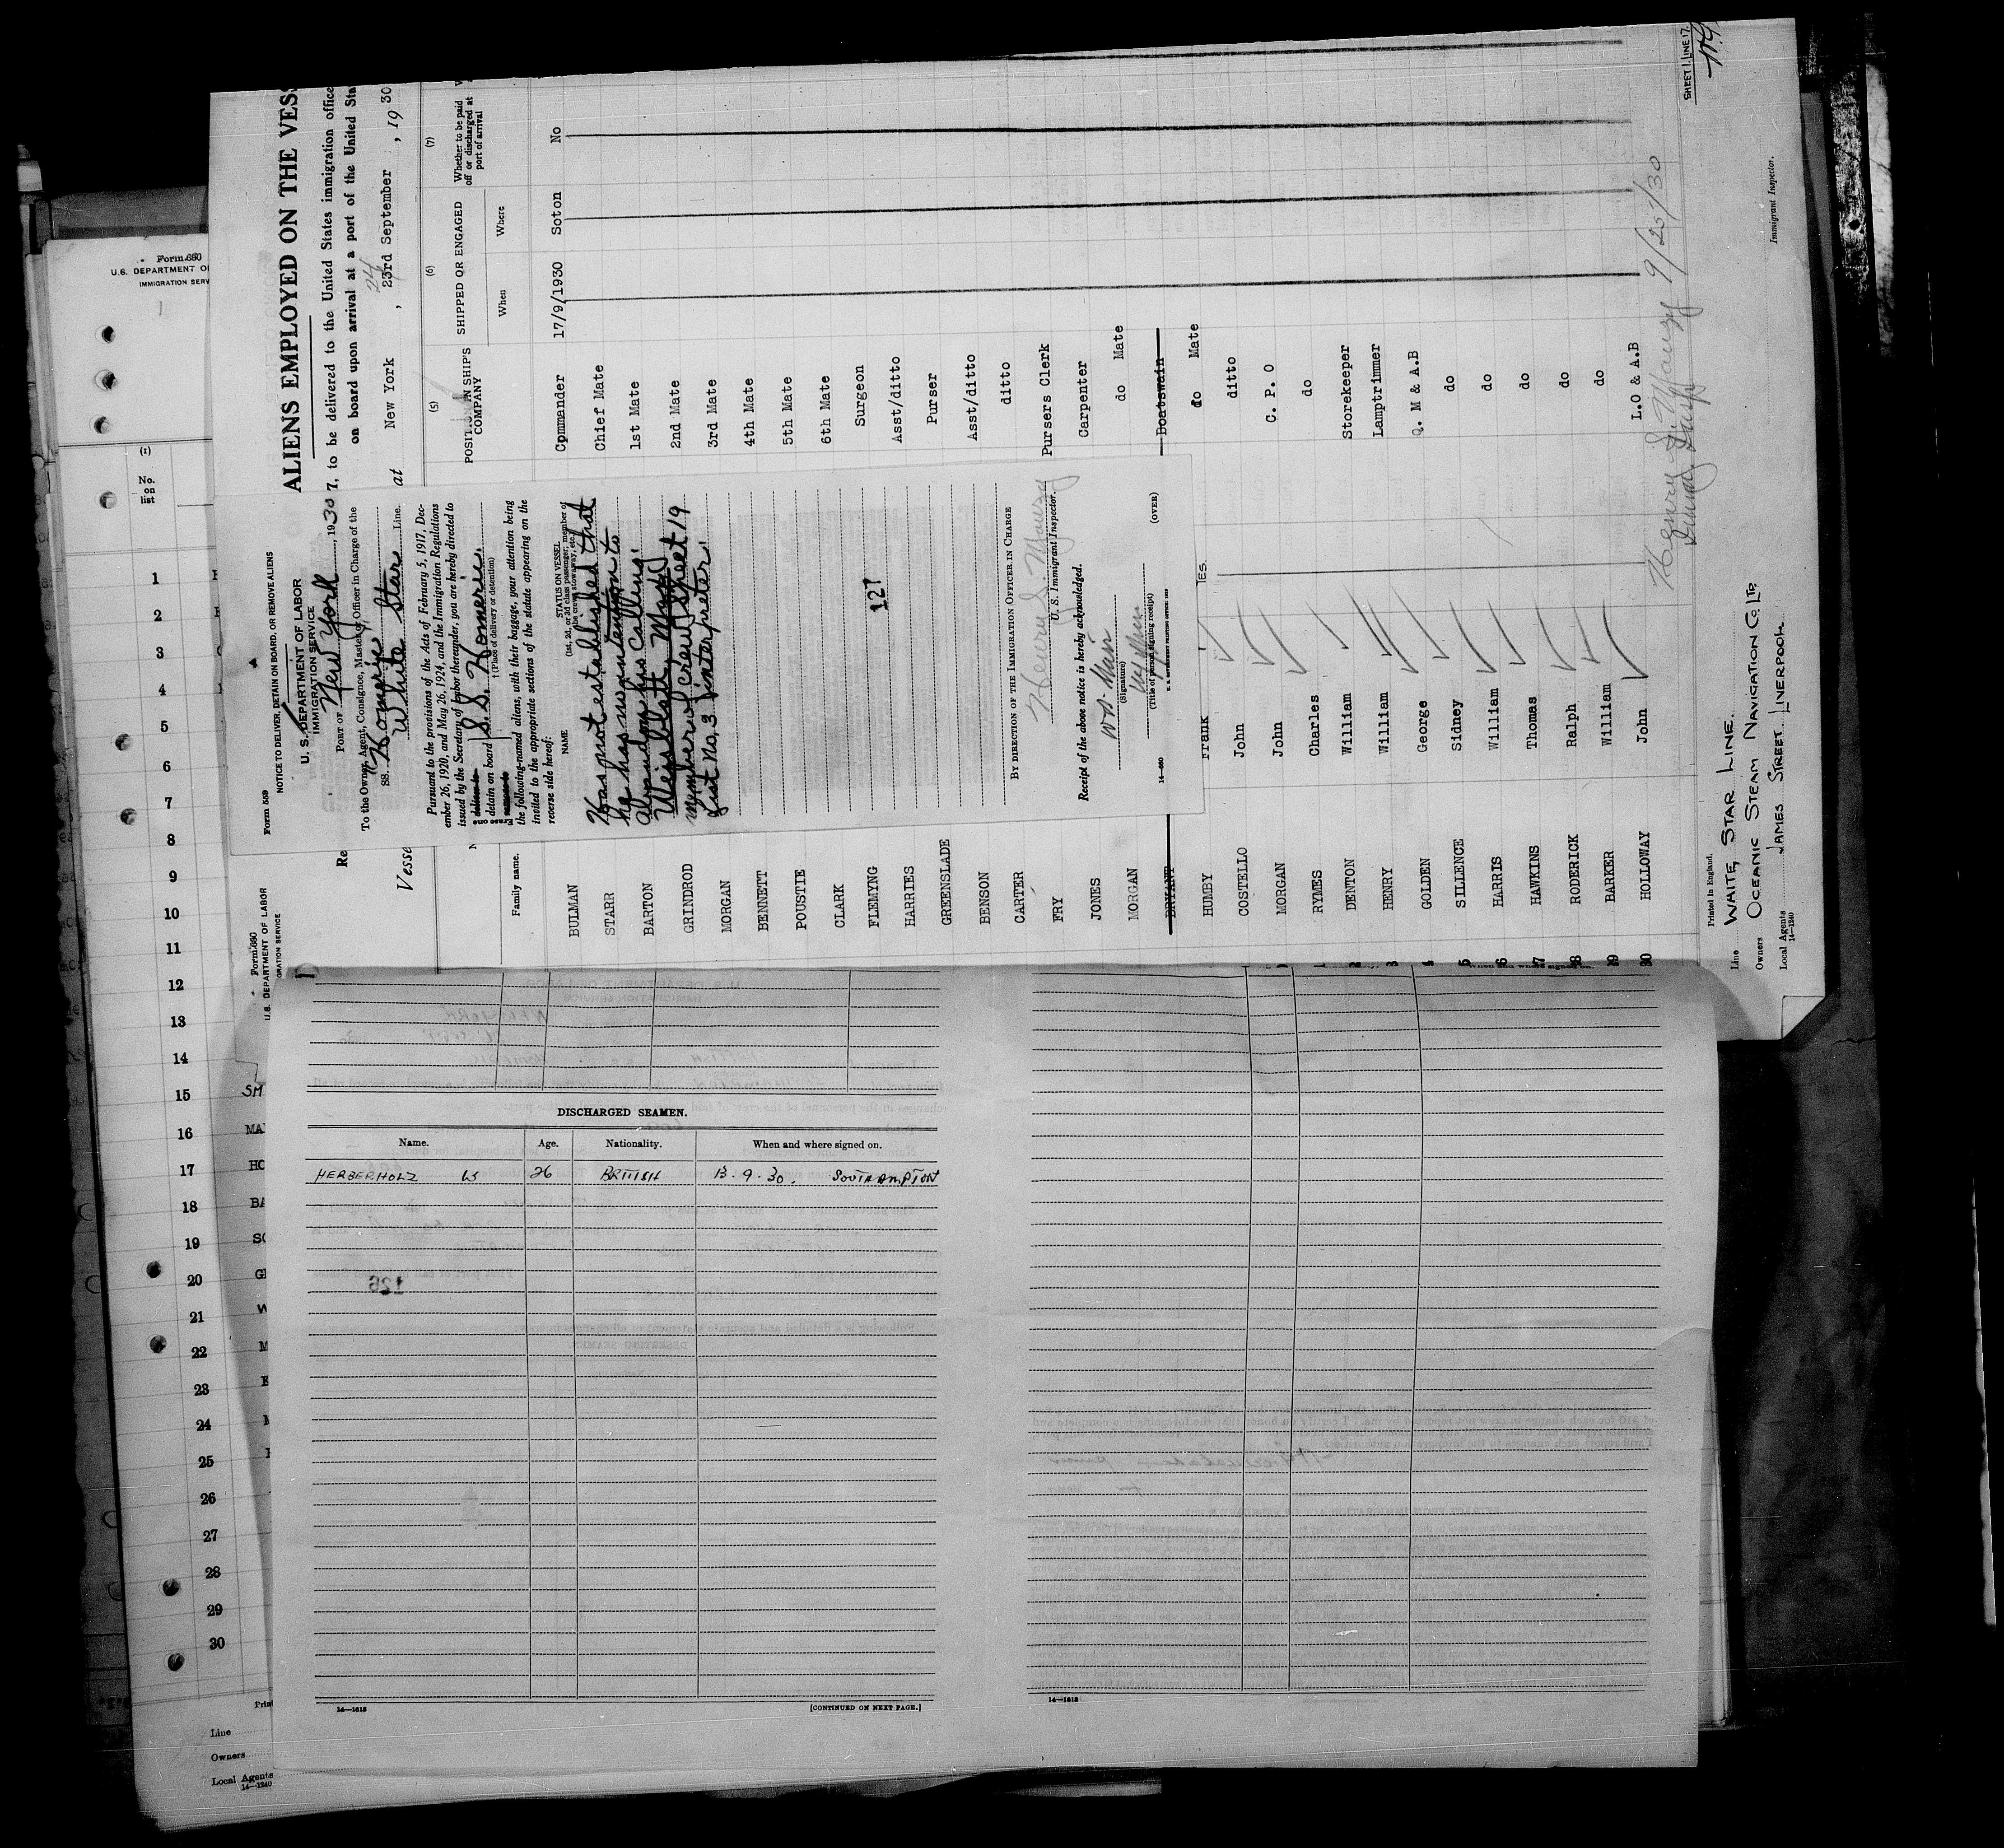 ALIENS EMPLOYED ON THE VESS
7, to be delivered to the United States immigration office
on board upon arrival at a port of the United Sta
Vesse
at New York , 23rd September , 1930
24
(5) (6) (7)
POSITION IN SHIP'S COMPANY
SHIPPED OR ENGAGED
When Where
Whether to be paid off or discharged at port of arrival
Family name.
Commander 17/9/1930 Soton No
Chief Mate
1st Mate
2nd Mate
3rd Mate
4th Mate
5th Mate
6th Mate
Surgeon
Asst/ditto
Purser
Asst/ditto
ditto
Pursers Clerk
Carpenter
do Mate
Boatswain
do Mate
ditto
C. P. O
do
Storekeeper
Lamptrimmer
Q. M & A.B
do
do
do
do
do
L.O & A.B
BULMAN
STARR
BARTON
GRINDROD
MORGAN
BENNETT
POUSTIE
CLARK
FLEMYNG
HARRIES
GREENSLADE
BENSON
CARTER
FRY
JONES
MORGAN
BRYANT
HUMBY Frank Yes.
COSTELLO John
MORGAN John
RYMES Charles
DENTON William
HENRY William
GOLDEN George
SILLENCE Sidney
HARRIS William
HAWKINS Thomas
RODERICK Ralph
BARKER William
HOLLOWAY John
Henry S. Mauzy 9/25/30
Immigrant Inspector.
SHEET 1. LINE 17.
Printed in England.
Line WHITE STAR LINE.
Owners OCEANIC STEAM NAVIGATION CO. LTD.
Local Agents JAMES STREET LIVERPOOL.
14—1240
Form 559
NOTICE TO DELIVER, DETAIN ON BOARD, OR REMOVE ALIENS
U. S. DEPARTMENT OF LABOR
IMMIGRATION SERVICE
PORT OF New York , 1930
To the Owner, Agent, Consignee, Master, Officer in Charge of the
SS. Homeric
White Star Line.
Pursuant to the provisions of the Acts of February 5, 1917, Dec-
ember 26, 1920, and May 26, 1924, and the Immigration Regulations
issued by the Secretary of Labor thereunder, you are hereby directed to
detain on board S.S. Homeric.
† (Place of delivery or detention)
the following-named aliens, with their baggage, your attention being
invited to the appropriate sections of the statute appearing on the
reverse side hereof:
NAME
STATUS ON VESSEL
(1st, 2d, or 3d class passenger, member of the crew, stowaway, etc.)
Has not established that
he has no intention to
abandon his calling.
Weisblatt,
member of crew, sheet 19
list No. 3 interpreter.
127
BY DIRECTION OF THE IMMIGRATION OFFICER IN CHARGE
Henry S. Mauzy
U. S. Immigrant Inspector.
Receipt of the above notice is hereby acknowledged.
(Signature)
(Title of person signing receipt)
14—660
(OVER)
Form 680
U.S. DEPARTMENT O
IMMIGRATION SERV
(1)
No. on list
1
2
3
4
5
6
7
8
9
10
11
12
13
14
15
16
17
18
19
20
21
22
23
24
25
26
27
28
29
30
Line
Owners
Local Agents
14—1240
Form 680
U.S. DEPARTMENT OF LABOR
GRATION SERVICE
DISCHARGED SEAMEN.
Name. Age. Nationality. When and where signed on.
HERBERHOLZ W 26 BRITISH 13.9.30. SOUTHAMPTON
126
14—1613
[CONTINUED ON NEXT PAGE.]
14—1613